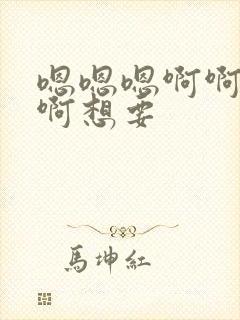 嗯嗯嗯啊啊
啊想要
馬坤紅